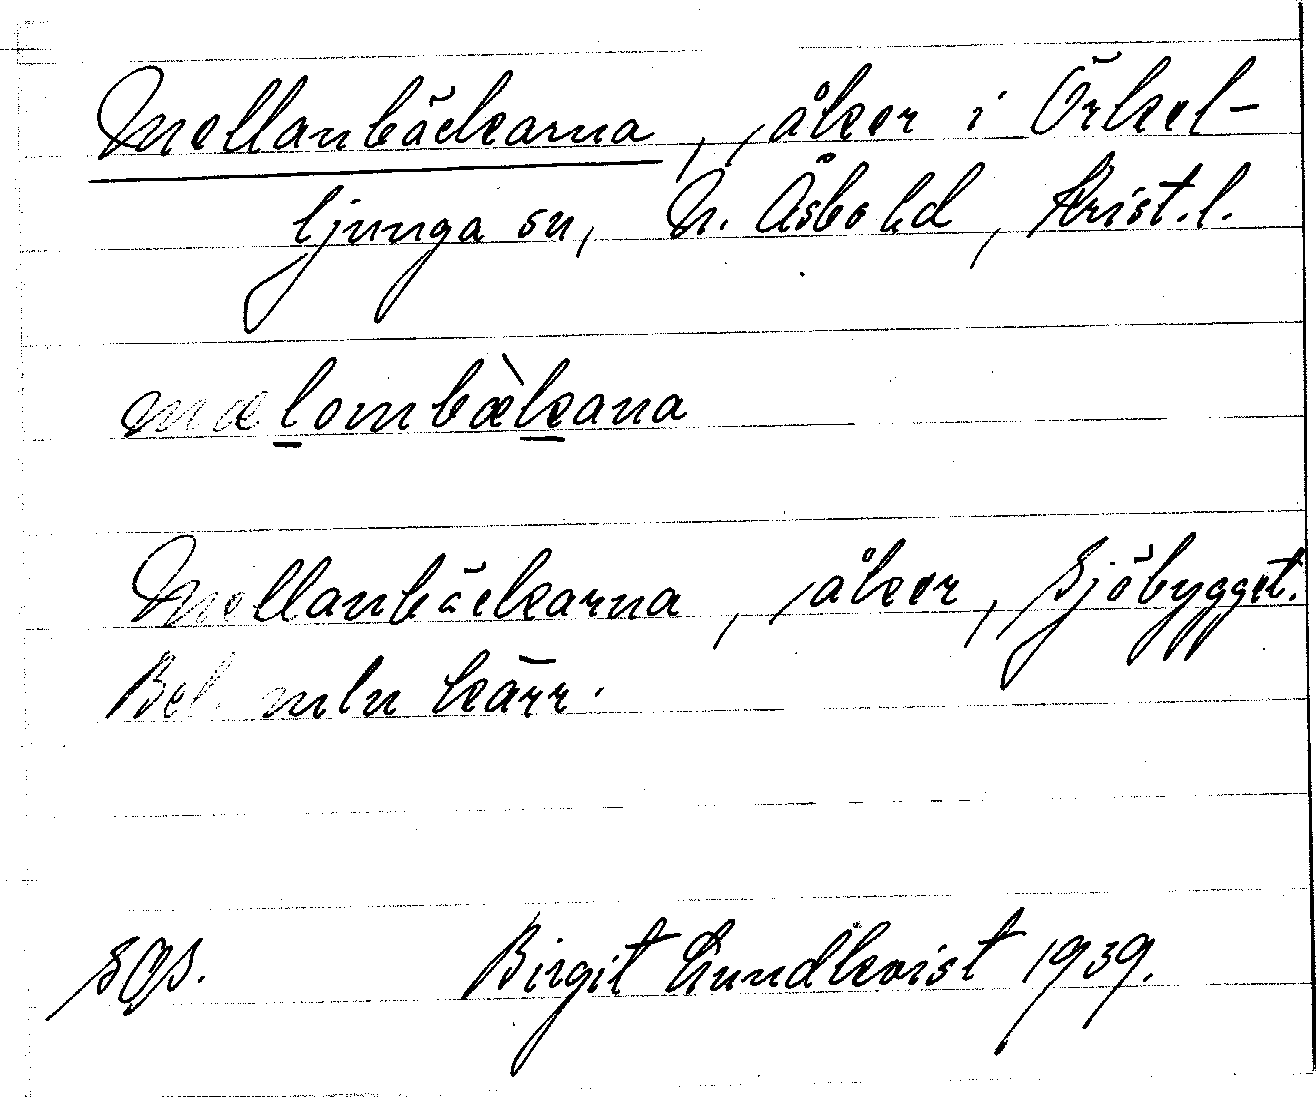 Mellanbäckarna, åker i Örkel-
ljunga sn, N. Åsbo hd, Krist. l.
mælombæ̀kana
Mellanbäckarna, åker, Sjöbygget.
Bel. mln kärr.
SOS. Birgit Lundkvist 1939.